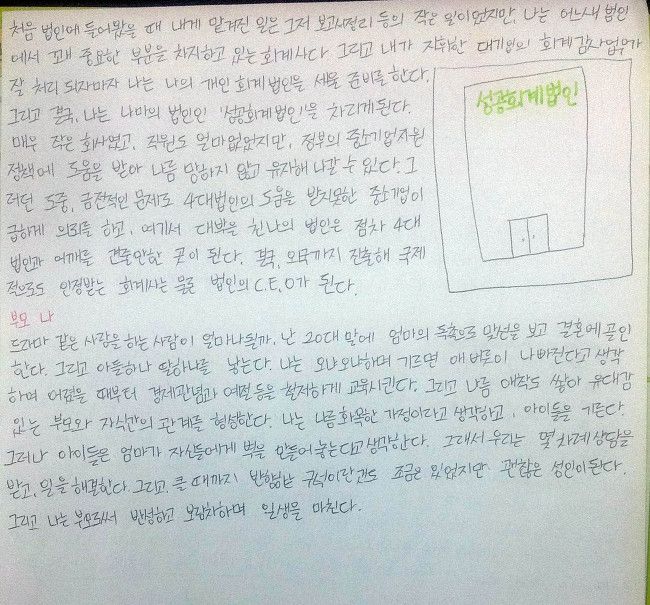 처음 법인에 들어왔을 때 내게 맡겨진 일은 그저 보고서정리 등의 작은 일이었지만, 나는 어느새 법인
에서 꽤 중요한 부분을 차지하고 있는 회계사다. 그리고 내가 지휘한 대기업의 회계감사업무가
잘 처리 되자마자 나는 나의 개인 회계법인을 세울 준비를 한다.
그리고 결국, 나는 나만의 법인인 '성공회계법인'을 차리게된다.
매우 작은 회사였고, 직원도 얼마없었지만, 정부의 중소기업지원
정책에 도움을 받아 나름 망하지 않고 유지해 나갈 수 있다. 그
러던 도중, 금전적인 문제로 4대법인의 도움을 받지못한 중소기업이
급하게 의뢰를 하고, 여기서 대박을 친 나의 법인은 점차 4대
법인과 어깨를 견줄만한 곳이 된다. 결국, 외국까지 진출해 국제
적으로도 인정받는 회계사는 물론 법인의 C.E.O가 된다.
성공회계법인
부모 나
드라마 같은 사랑을 하는 사람이 얼마나될까. 난 20대 말에 엄마의 독촉으로 맞선을 보고 결혼에 골인
한다. 그리고 아들하나 딸하나를 낳는다. 나는 오냐오냐하며 기르면 애 버릇이 나빠진다고 생각
하며 어렸을 때부터 경제관념과 예절 등을 철저하게 교육시킨다. 그리고 나름 애착도 쌓아 유대감
있는 부모와 자식간의 관계를 형성한다. 나는 나름 화목한 가정이라고 생각하고, 아이들을 기른다.
그러나 아이들은 엄마가 자신들에게 벽을 만들어놓는다고 생각한다. 그래서 우리는 몇 차례 상담을
받고, 일을 해결한다. 그리고, 클 때까지 반항하는 구석이란 조금은 있었지만 괜찮은 성인이된다.
그리고 나는 부모로써 반성하고 보람차하며 일생을 마친다.